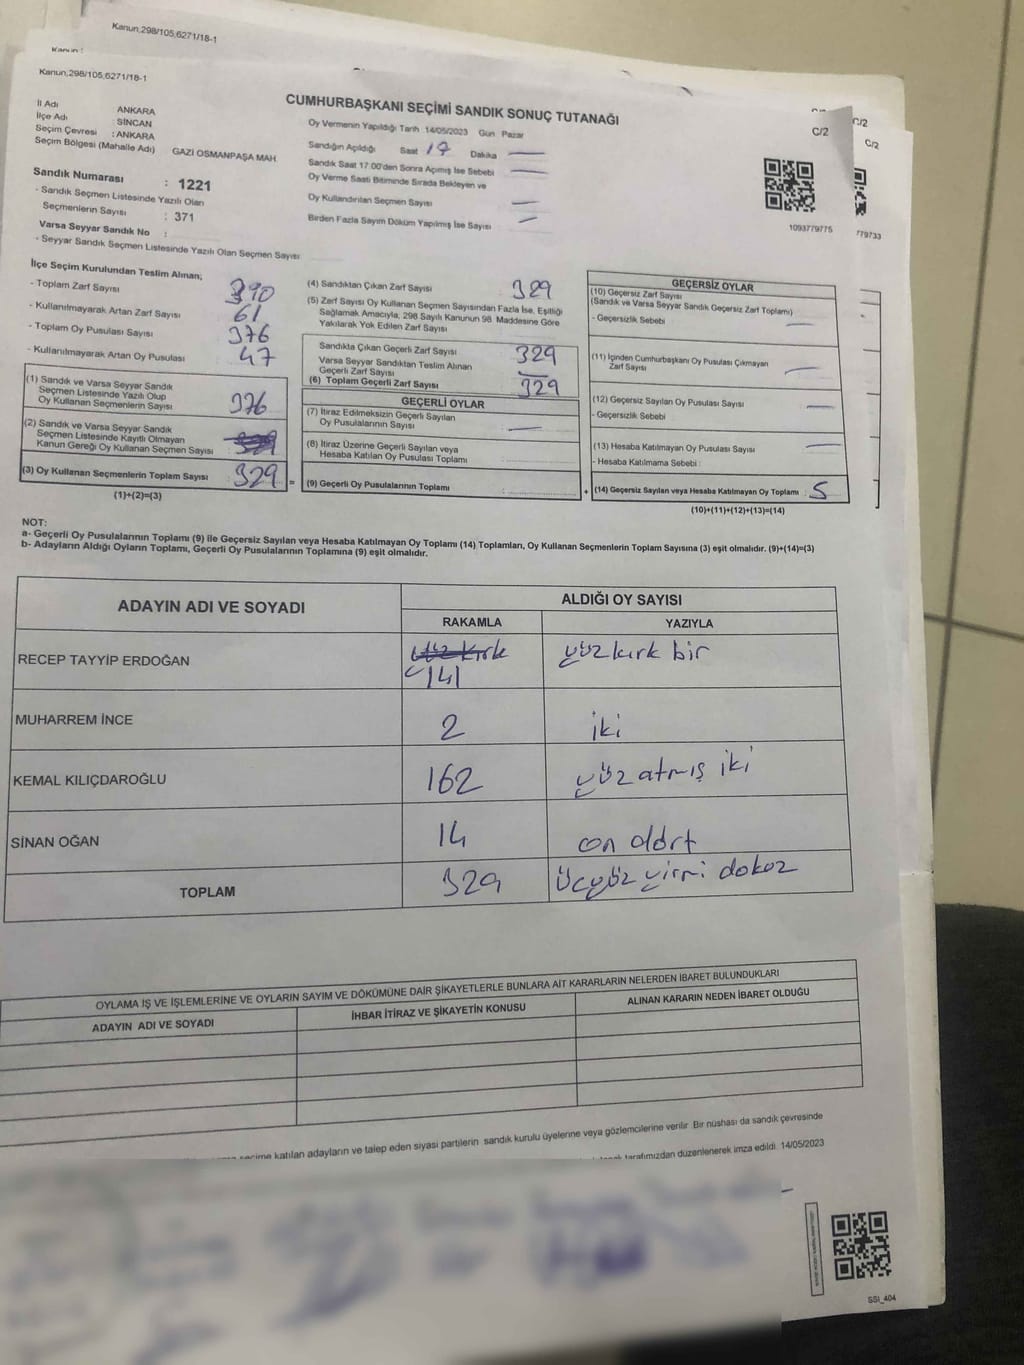 Kanun,298/105,6271/18-1
Kanun,298/105,6271/18-1
İl Adı ANKARA
İlçe Adı : SİNCAN
Seçim Çevresi : ANKARA
Seçim Bölgesi (Mahalle Adı) GAZİ OSMANPAŞA MAH.
Sandık Numarası : 1221
- Sandık Seçmen Listesinde Yazılı Olan
Seçmenlerin Sayısı : 371
Varsa Seyyar Sandık No :
- Seyyar Sandık Seçmen Listesinde Yazılı Olan Seçmen Sayısı
CUMHURBAŞKANI SEÇİMİ SANDIK SONUÇ TUTANAĞI
Oy Vermenin Yapıldığı Tarih 14/05/2023 Gün Pazar
Sandığın Açıldığı Saat 17 Dakika —
Sandık Saat 17.00'den Sonra Açımış İse Sebebi —
Oy Verme Saati Bitiminde Sırada Bekleyen ve
Oy Kullandırılan Seçmen Sayısı —
Birden Fazla Sayım Döküm Yapılmış İse Sayısı —
C/2
C/2
C/2
1093779775
779733
İlçe Seçim Kurulundan Teslim Alınan;
- Toplam Zarf Sayısı 390
- Kullanılmayarak Artan Zarf Sayısı 61
- Toplam Oy Pusulası Sayısı 376
- Kullanılmayarak Artan Oy Pusulası 47
(1) Sandık ve Varsa Seyyar Sandık
Seçmen Listesinde Yazılı Olup
Oy Kullanan Seçmenlerin Sayısı 376
(2) Sandık ve Varsa Seyyar Sandık
Seçmen Listesinde Kayıtlı Olmayan
Kanun Gereği Oy Kullanan Seçmen Sayısı
(3) Oy Kullanan Seçmenlerin Toplam Sayısı 329 =
(1)+(2)=(3)
(4) Sandıktan Çıkan Zarf Sayısı 329
(5) Zarf Sayısı Oy Kullanan Seçmen Sayısından Fazla İse, Eşitliği
Sağlamak Amacıyla, 298 Sayılı Kanunun 98. Maddesine Göre
Yakılarak Yok Edilen Zarf Sayısı
Sandıkta Çıkan Geçerli Zarf Sayısı 329
Varsa Seyyar Sandıktan Teslim Alınan
Geçerli Zarf Sayısı —
(6) Toplam Geçerli Zarf Sayısı 329
GEÇERLİ OYLAR
(7) İtiraz Edilmeksizin Geçerli Sayılan
Oy Pusulalarının Sayısı —
(8) İtiraz Üzerine Geçerli Sayılan veya
Hesaba Katılan Oy Pusulası Toplamı
(9) Geçerli Oy Pusulalarının Toplamı : +
GEÇERSİZ OYLAR
(10) Geçersiz Zarf Sayısı
(Sandık ve Varsa Seyyar Sandık Geçersiz Zarf Toplamı)
- Geçersizlik Sebebi —
(11) İçinden Cumhurbaşkanı Oy Pusulası Çıkmayan
Zarf Sayısı —
(12) Geçersiz Sayılan Oy Pusulası Sayısı —
- Geçersizlik Sebebi
(13) Hesaba Katılmayan Oy Pusulası Sayısı —
- Hesaba Katılmama Sebebi :
(14) Geçersiz Sayılan veya Hesaba Katılmayan Oy Toplamı : 5
(10)+(11)+(12)+(13)=(14)
NOT:
a- Geçerli Oy Pusulalarının Toplamı (9) ile Geçersiz Sayılan veya Hesaba Katılmayan Oy Toplamı (14) Toplamları, Oy Kullanan Seçmenlerin Toplam Sayısına (3) eşit olmalıdır. (9)+(14)=(3)
b- Adayların Aldığı Oyların Toplamı, Geçerli Oy Pusulalarının Toplamına (9) eşit olmalıdır.
ADAYIN ADI VE SOYADI ALDIĞI OY SAYISI
RAKAMLA YAZIYLA
RECEP TAYYİP ERDOĞAN yüz kırk yüz kırk bir
141
MUHARREM İNCE 2 iki
KEMAL KILIÇDAROĞLU 162 yüz atmış iki
SİNAN OĞAN 14 on dört
TOPLAM 329 üçyüz yirmi dokuz
OYLAMA İŞ VE İŞLEMLERİNE VE OYLARIN SAYIM VE DÖKÜMÜNE DAİR ŞİKAYETLERLE BUNLARA AİT KARARLARIN NELERDEN İBARET BULUNDUKLARI
ADAYIN ADI VE SOYADI İHBAR İTİRAZ VE ŞİKAYETİN KONUSU ALINAN KARARIN NEDEN İBARET OLDUĞU
seçime katılan adayların ve talep eden siyasi partilerin sandık kurulu üyelerine veya gözlemcilerine verilir. Bir nüshası da sandık çevresinde
tarafımızdan düzenlenerek imza edildi. 14/05/2023
SSI_404